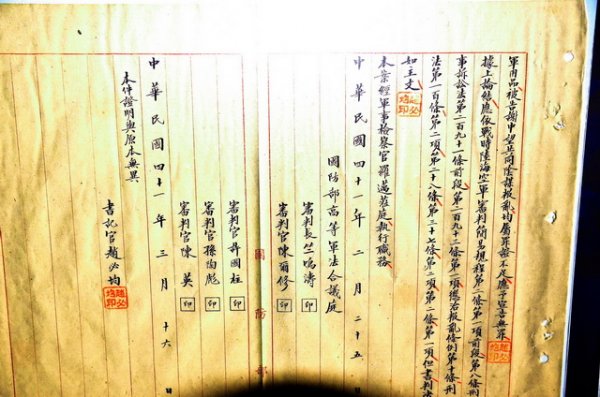 軍用品被告謝中望共同陰謀叛亂均屬罪證不足應予宣告無罪
據上論結應依戰時陸海空軍審判簡易規程第二條第一項前段第八條刑
事訴訟法第二百九十一條前段第二百九十三條第一項懲治叛亂條例第十條刑
法第一百條第二項第二十八條第三十七條第二項第二條第一項但書判決
如主文
本案經軍事檢察官羅邁蒞庭執行職務
中華民國四十一年二月二十五日
國防部高等軍法合議庭
審判長竺鳴濤
審判官陳爾修
審判官許國柱
審判官孫陶彪
審判官陳英
中華民國四十一年三月十六日
本件證明與原本無異
書記官趙必均
國防部
印
印
印
印
印